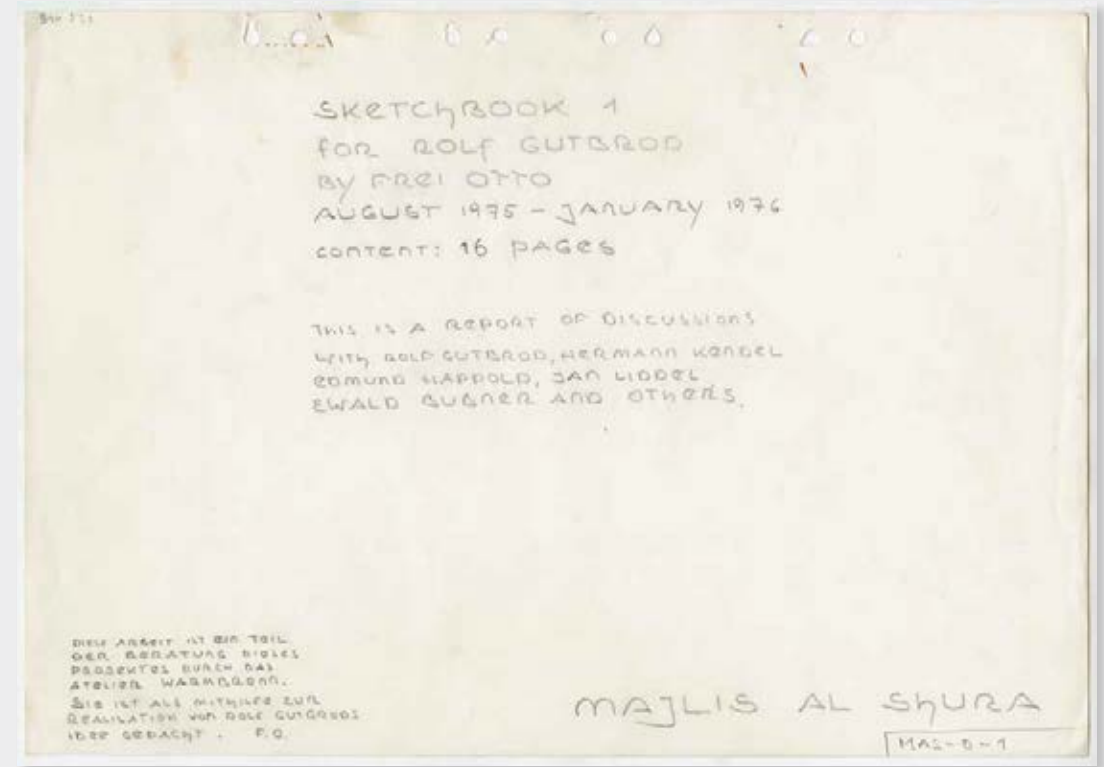 SKETCHBOOK 1
FOR ROLF GUTBROD
BY FREI OTTO
AUGUST 1975 – JANUARY 1976
CONTENT: 16 PAGES
THIS IS A REPORT OF DISCUSSIONS
WITH ROLF GUTBROD, HERMANN KENDEL
EDMUND HAPPOLD, JAN LIDDEL
EWALD BUBNER AND OTHERS.
DIESE ARBEIT IST EIN TEIL
DER BERATUNG DIESES
PROJEKTES DURCH DAS
ATELIER WARMBRONN.
SIE IST ALS MITHILFE ZUR
REALISATION VON ROLF GUTBRODS
IDEE GEDACHT. F.O.
MAJLIS AL SHURA
MAS-0-1